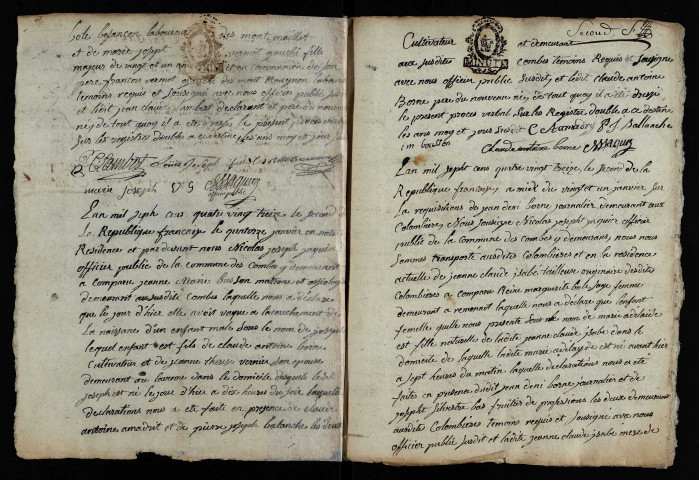 et de marie joseph vernet gauché fille
majeur de vingt et un an et en convention de son
pere francois vernet du mont
temoins requis et soussigné avec nous officier public susdit
et ledit jean claude jambert declarant et pere du nouveau
né de tout quoy il a été dressé le present proces verbal
sur les registres double a les ans moy et jour susdit
marie Joseph
L'an mil sept cens quatre vingt treize le second de
la Republique francoise le quatorze janvier en notre
Residence et pardevant nous Nicolas joseph jaquier
officier public de la commune des combes y demeurant
a comparu jeanne Marie basson matrone et
demeurant audite combes laquelle nous a declaré
que le jour d'hier elle avoit vaqué a l'acouchement de
La naissance d'un enfant male sous le nom de joseph
lequel enfant est fils de claude antoine borne
Cultivateur et de jeanne therese vernier son epouse
demeurant au dans le domicile desquels ledit
joseph est né le jour d'hier a dix heures du soir laquelle
declarations nous a été faite en presence de claude
antoine et de pierre joseph balanche les deux
Second
Cultivateur et demeurant
aux susdites combes temoins Requis et soussigné
avec nous officier public susdit et ledit claude antoine
Borne pere du nouveau né de tout quoy il a été dressé
le present proces verbal sur les Registre double a
les ans moy et jour susdit P J Ballanche
j m basson claude antoine borne
L'an mil sept cens quatre vingt treize le second de la
Republique francoise a midi du vingt et un janvier sur
la requisitions de jean deni borne journalier demeurant aux
Colombieres Nous soussigné Nicolas joseph jaquier officier
public de la commune des combes y demeurant, nous nous
sommes transporté ausdites colombieres et en la residence
actuelle de jeanne claude isabe tailleuse originaire desdites
Colombieres a comparu Reine marguerite sage femme
demeurant a remonot laquelle nous a declaré que l'enfant
femelle quelle nous presente sous le nom de marie adelaide
est fille naturelle de ladite jeanne claude isabe dans le
domicile de laquelle ladite marie adelayde est né avant hier
a sept heures du matin laquelle declarations nous a été
faites en presence dudit jean deni borne journalier et de
joseph silvestre bas fruitier de professions les deux demeurant
ausdites Colombieres temoins requis et soussigné avec nous
officier public susdit et ladite jeanne claude isabe mere de